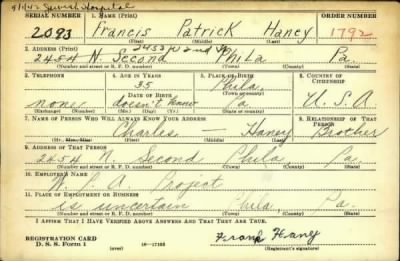 9/1/42 Jewish Hospital
SERIAL NUMBER 1. NAME (Print) ORDER NUMBER
2093 Francis Patrick Haney 1792
(First) (Middle) (Last)
2. ADDRESS (Print)
2454 N. Second Phila Pa.
(Number and street or R. F. D. number) (Town) (County) (State)
3. TELEPHONE 4. AGE IN YEARS 5. PLACE OF BIRTH 6. COUNTRY OF CITIZENSHIP
35 Phila.
DATE OF BIRTH (Town or county)
none doesn't know Pa. U.S.A.
(Exchange) (Number) (Mo.) (Day) (Yr.) (State or country)
7. NAME OF PERSON WHO WILL ALWAYS KNOW YOUR ADDRESS 8. RELATIONSHIP OF THAT PERSON
Charles — Haney Brother
(Mr., Mrs., Miss) (First) (Middle) (Last)
9. ADDRESS OF THAT PERSON
2454 N Second Phila Pa.
(Number and street or R. F. D. number) (Town) (County) (State)
10. EMPLOYER'S NAME
W. P. A. Project
11. PLACE OF EMPLOYMENT OR BUSINESS
is uncertain Phila, Pa.
(Number and street or R. F. D. number) (Town) (County) (State)
I AFFIRM THAT I HAVE VERIFIED ABOVE ANSWERS AND THAT THEY ARE TRUE.
REGISTRATION CARD
D. S. S. Form 1 (over) 16—17105 Frank Haney
(Registrant's signature)